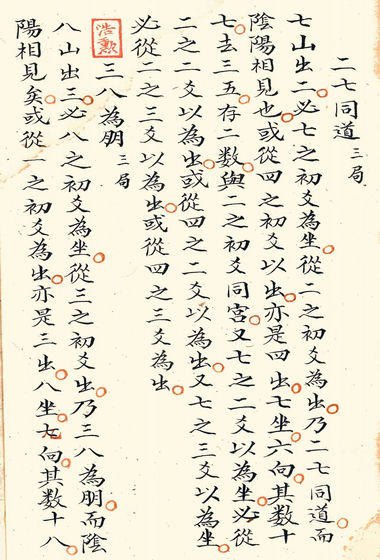 二七同道三局
七山出二必七之初爻為坐從二之初爻為出乃二七同道而
陰陽相見也或從四之初爻以出亦是四出七坐六向其數十
七去三五存二數與二之初爻同宮又七之二爻以為坐必從
二之二爻以為出或從四之二爻以為出又七之三爻以為坐
必從二之三爻以為出或從四之三爻為出
浩勲
三八為朋三局
八山出三必八之初爻為坐從三之初爻出乃三八為朋而陰
陽相見矣或從一之初爻為出亦是三出八坐七向其數十八